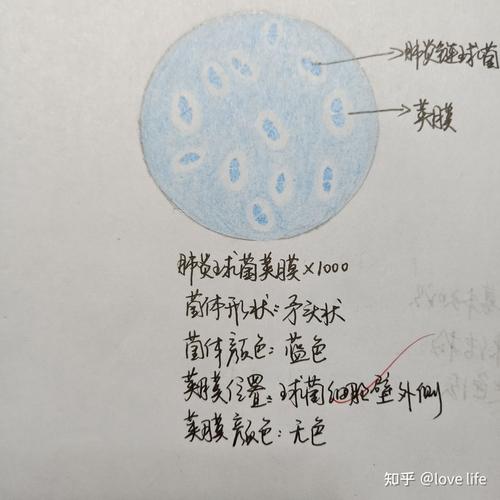 肺炎链球菌
荚膜
肺炎球菌荚膜×1000
菌体形状:矛头状
菌体颜色:蓝色
荚膜位置:球菌细胞壁外侧
荚膜颜色:无色
知乎 @love life